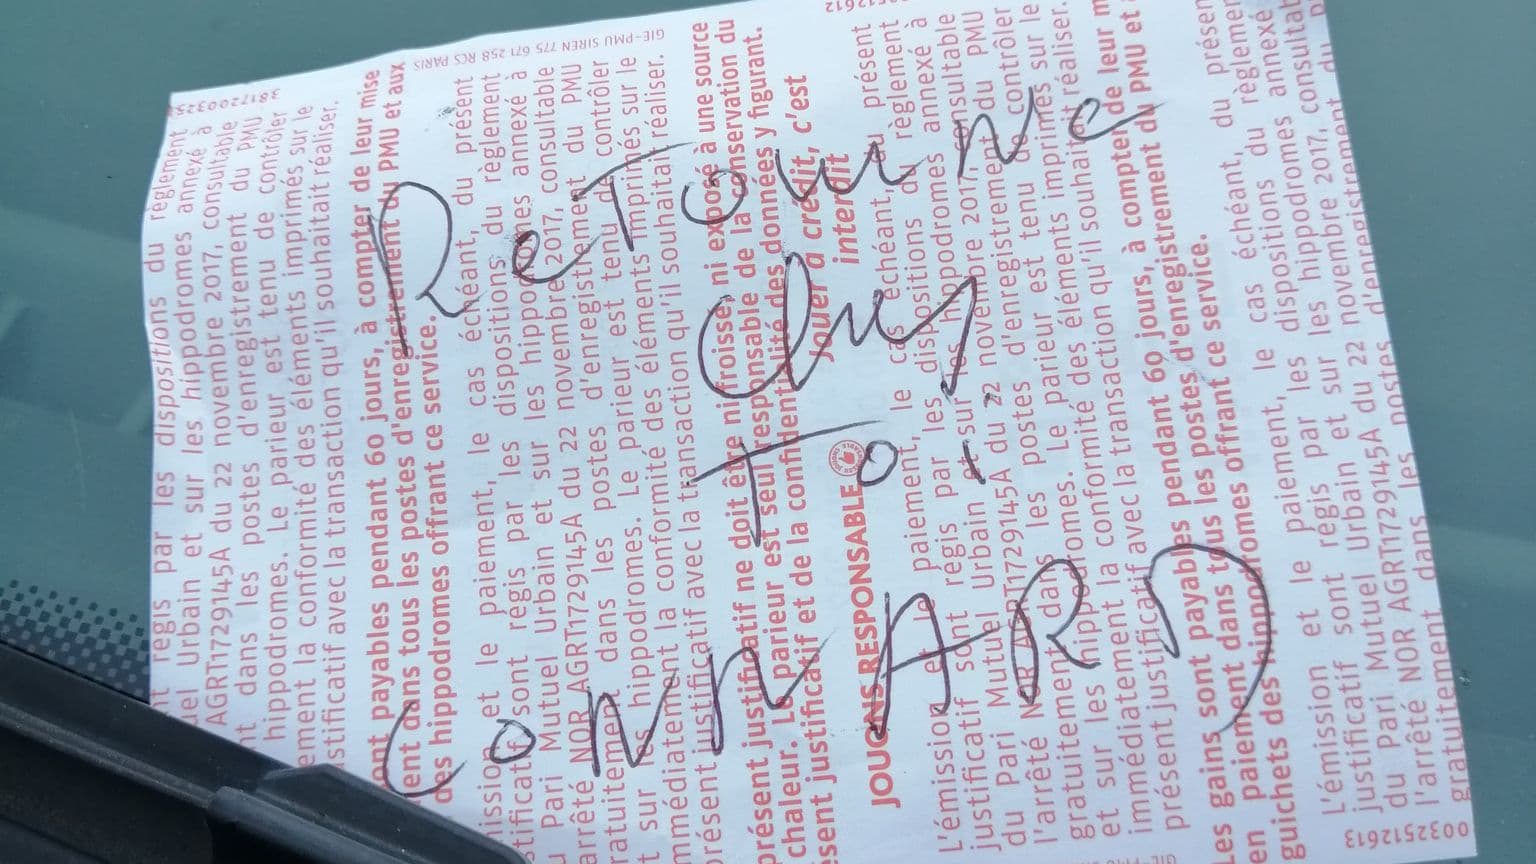 ReTourne
chez
Toi
CONNARD
GIE-PMU SIREN 775 671 258 RCS PARIS
compter de leur mise
payables pendant 60 jours, à
dans tous les postes d'enregistrement du PMU et aux
des hippodromes offrant ce service.
L'émission et le paiement, le cas échéant, du présent
justificatif sont régis par les dispositions du règlement
du Pari Mutuel Urbain et sur les hippodromes annexé à
l'arrêté NOR AGRT1729145A du 22 novembre 2017, consultable
gratuitement dans les postes d'enregistrement du PMU
et sur les hippodromes. Le parieur est tenu de contrôler
immédiatement la conformité des éléments imprimés sur le
présent justificatif avec la transaction qu'il souhaitait réaliser.
présent justificatif ne doit être ni froissé ni exposé à une source
chaleur. Le parieur est seul responsable de la conservation du
présent justificatif et de la confidentialité des données y figurant.
JOUONS RESPONSABLE
Jouer à crédit, c'est
interdit
L'émission et le paiement, le cas échéant, du présent
justificatif sont régis par les dispositions du règlement
du Pari Mutuel Urbain et sur les hippodromes annexé à
l'arrêté NOR AGRT1729145A du 22 novembre 2017, consultable
gratuitement dans les postes d'enregistrement du PMU
et sur les hippodromes. Le parieur est tenu de contrôler
immédiatement la conformité des éléments imprimés sur le
présent justificatif avec la transaction qu'il souhaitait réaliser.
Les gains sont payables pendant 60 jours, à compter de leur m
en paiement dans tous les postes d'enregistrement du PMU et
guichets des hippodromes offrant ce service.
L'émission et le paiement, le cas échéant, du présen
justificatif sont régis par les dispositions du règlemen
du Pari Mutuel Urbain et sur les hippodromes annexé
l'arrêté NOR AGRT1729145A du 22 novembre 2017, consultab
gratuitement dans les postes d'enregistrement du
0032512613